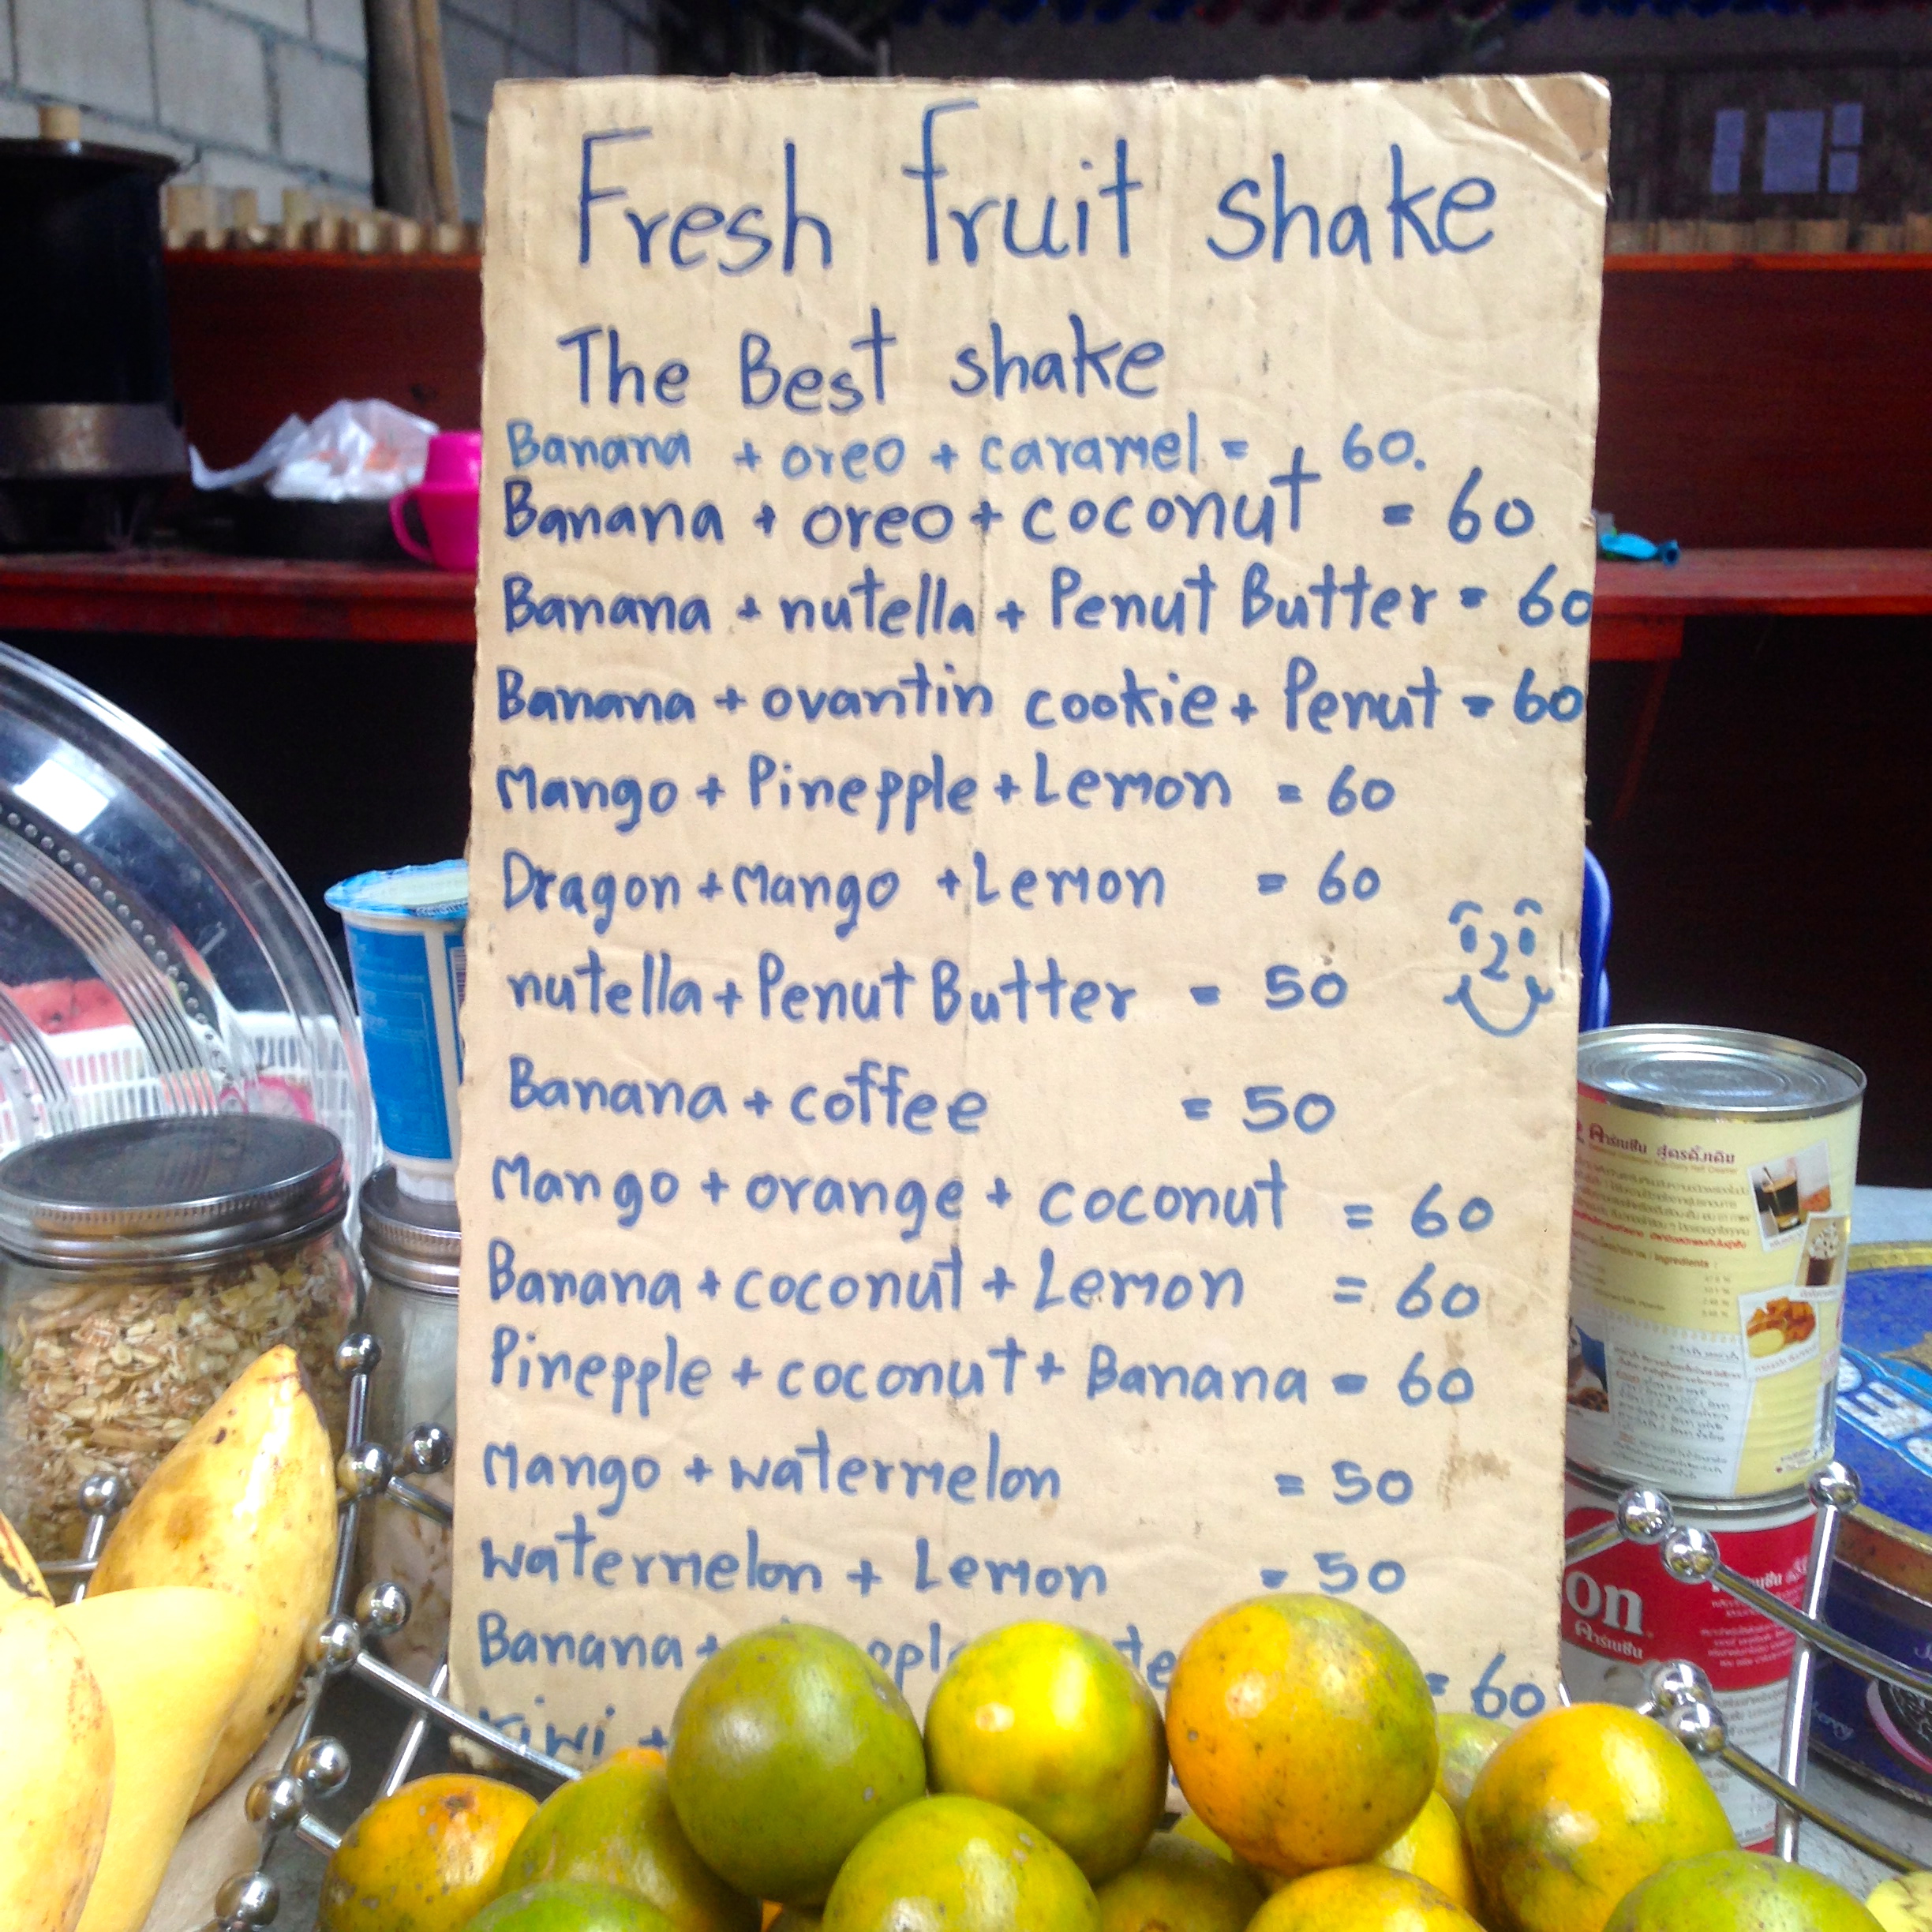 Fresh fruit shake
The Best shake
Banana + oreo + caramel = 60.
Banana + oreo + coconut = 60
Banana + nutella + Penut Butter = 60
Banana + ovantin cookie + Penut = 60
Mango + Pinepple + Lemon = 60
Dragon + Mango + Lemon = 60
nutella + Penut Butter = 50
Banana + coffee = 50
Mango + orange + coconut = 60
Banana + coconut + Lemon = 60
Pinepple + coconut + Banana = 60
Mango + watermelon = 50
watermelon + Lemon = 50
Banana + = 60
kiwi +
คาร์เนชัน สูตรดั้งเดิม
Ingredients :
on
คาร์เนชัน